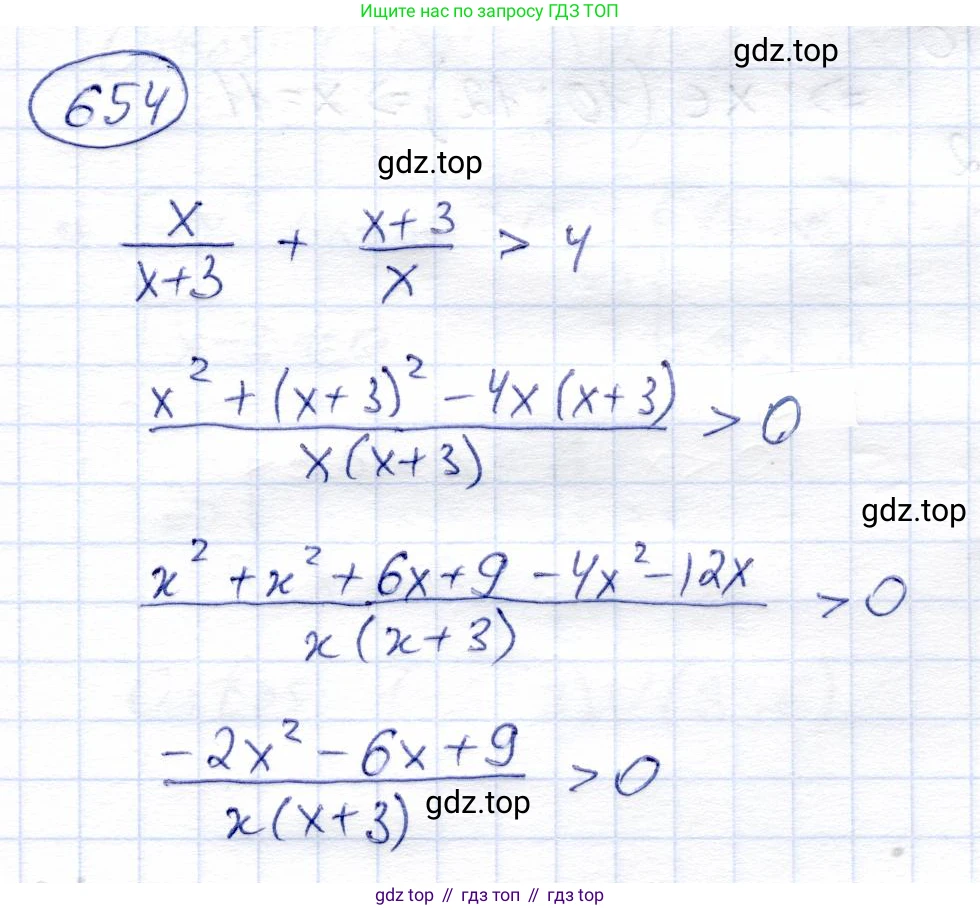 Ищите нас по запросу ГДЗ ТОП
gdz.top
654
gdz.top
x/(x+3) + (x+3)/x > 4
(x² + (x+3)² - 4x(x+3))/(x(x+3)) > 0
gdz.top
(x² + x² + 6x + 9 - 4x² - 12x)/(x(x+3)) > 0
(-2x² - 6x + 9)/(x(x+3)) > 0
gdz.top
gdz top // гдз топ // gdz top